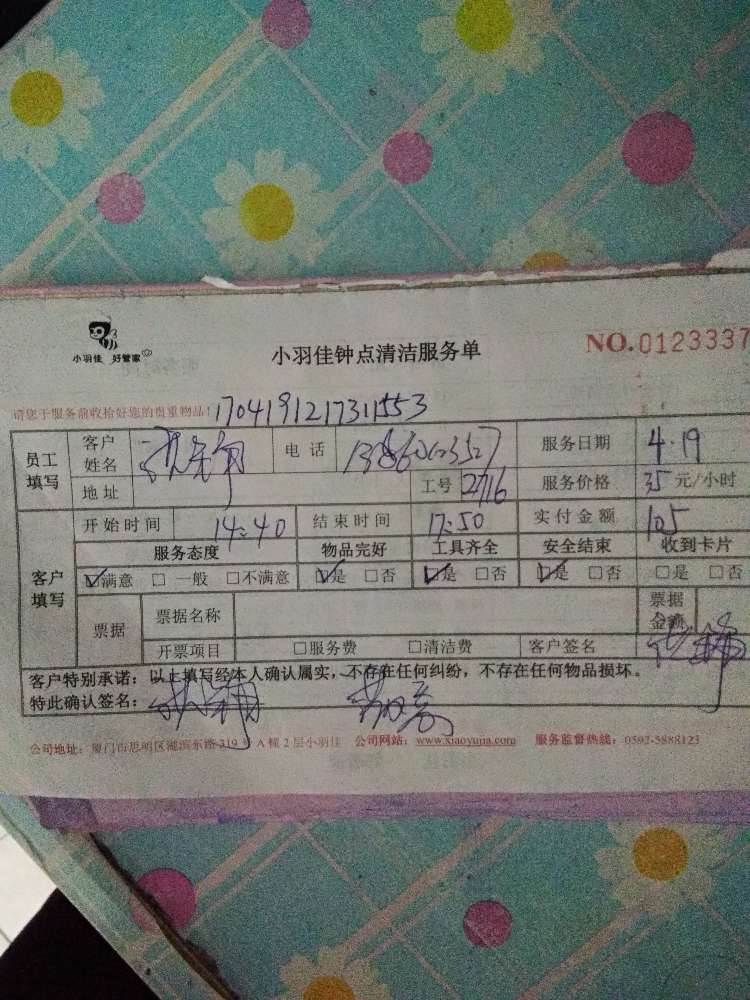 小羽佳 好管家
小羽佳钟点清洁服务单
NO.0123337
请您于服务前收拾好您的贵重物品!
1704191217311553
员工填写 客户姓名 电话 服务日期 4.19
地址 工号 2716 服务价格 35 元/小时
客户填写 开始时间 14:40 结束时间 17:50 实付金额 105
服务态度 物品完好 工具齐全 安全结束 收到卡片
☑满意 □一般 □不满意 ☑是 □否 ☑是 □否 ☑是 □否 □是 □否
票据 票据名称 票据金额
开票项目 □服务费 □清洁费 客户签名
客户特别承诺：以上填写经本人确认属实，不存在任何纠纷，不存在任何物品损坏。
特此确认签名：
公司地址：厦门市思明区湖滨东路 319 号 A 幢 2 层小羽佳 公司网站：www.xiaoyujia.com 服务监督热线：0592-5888123